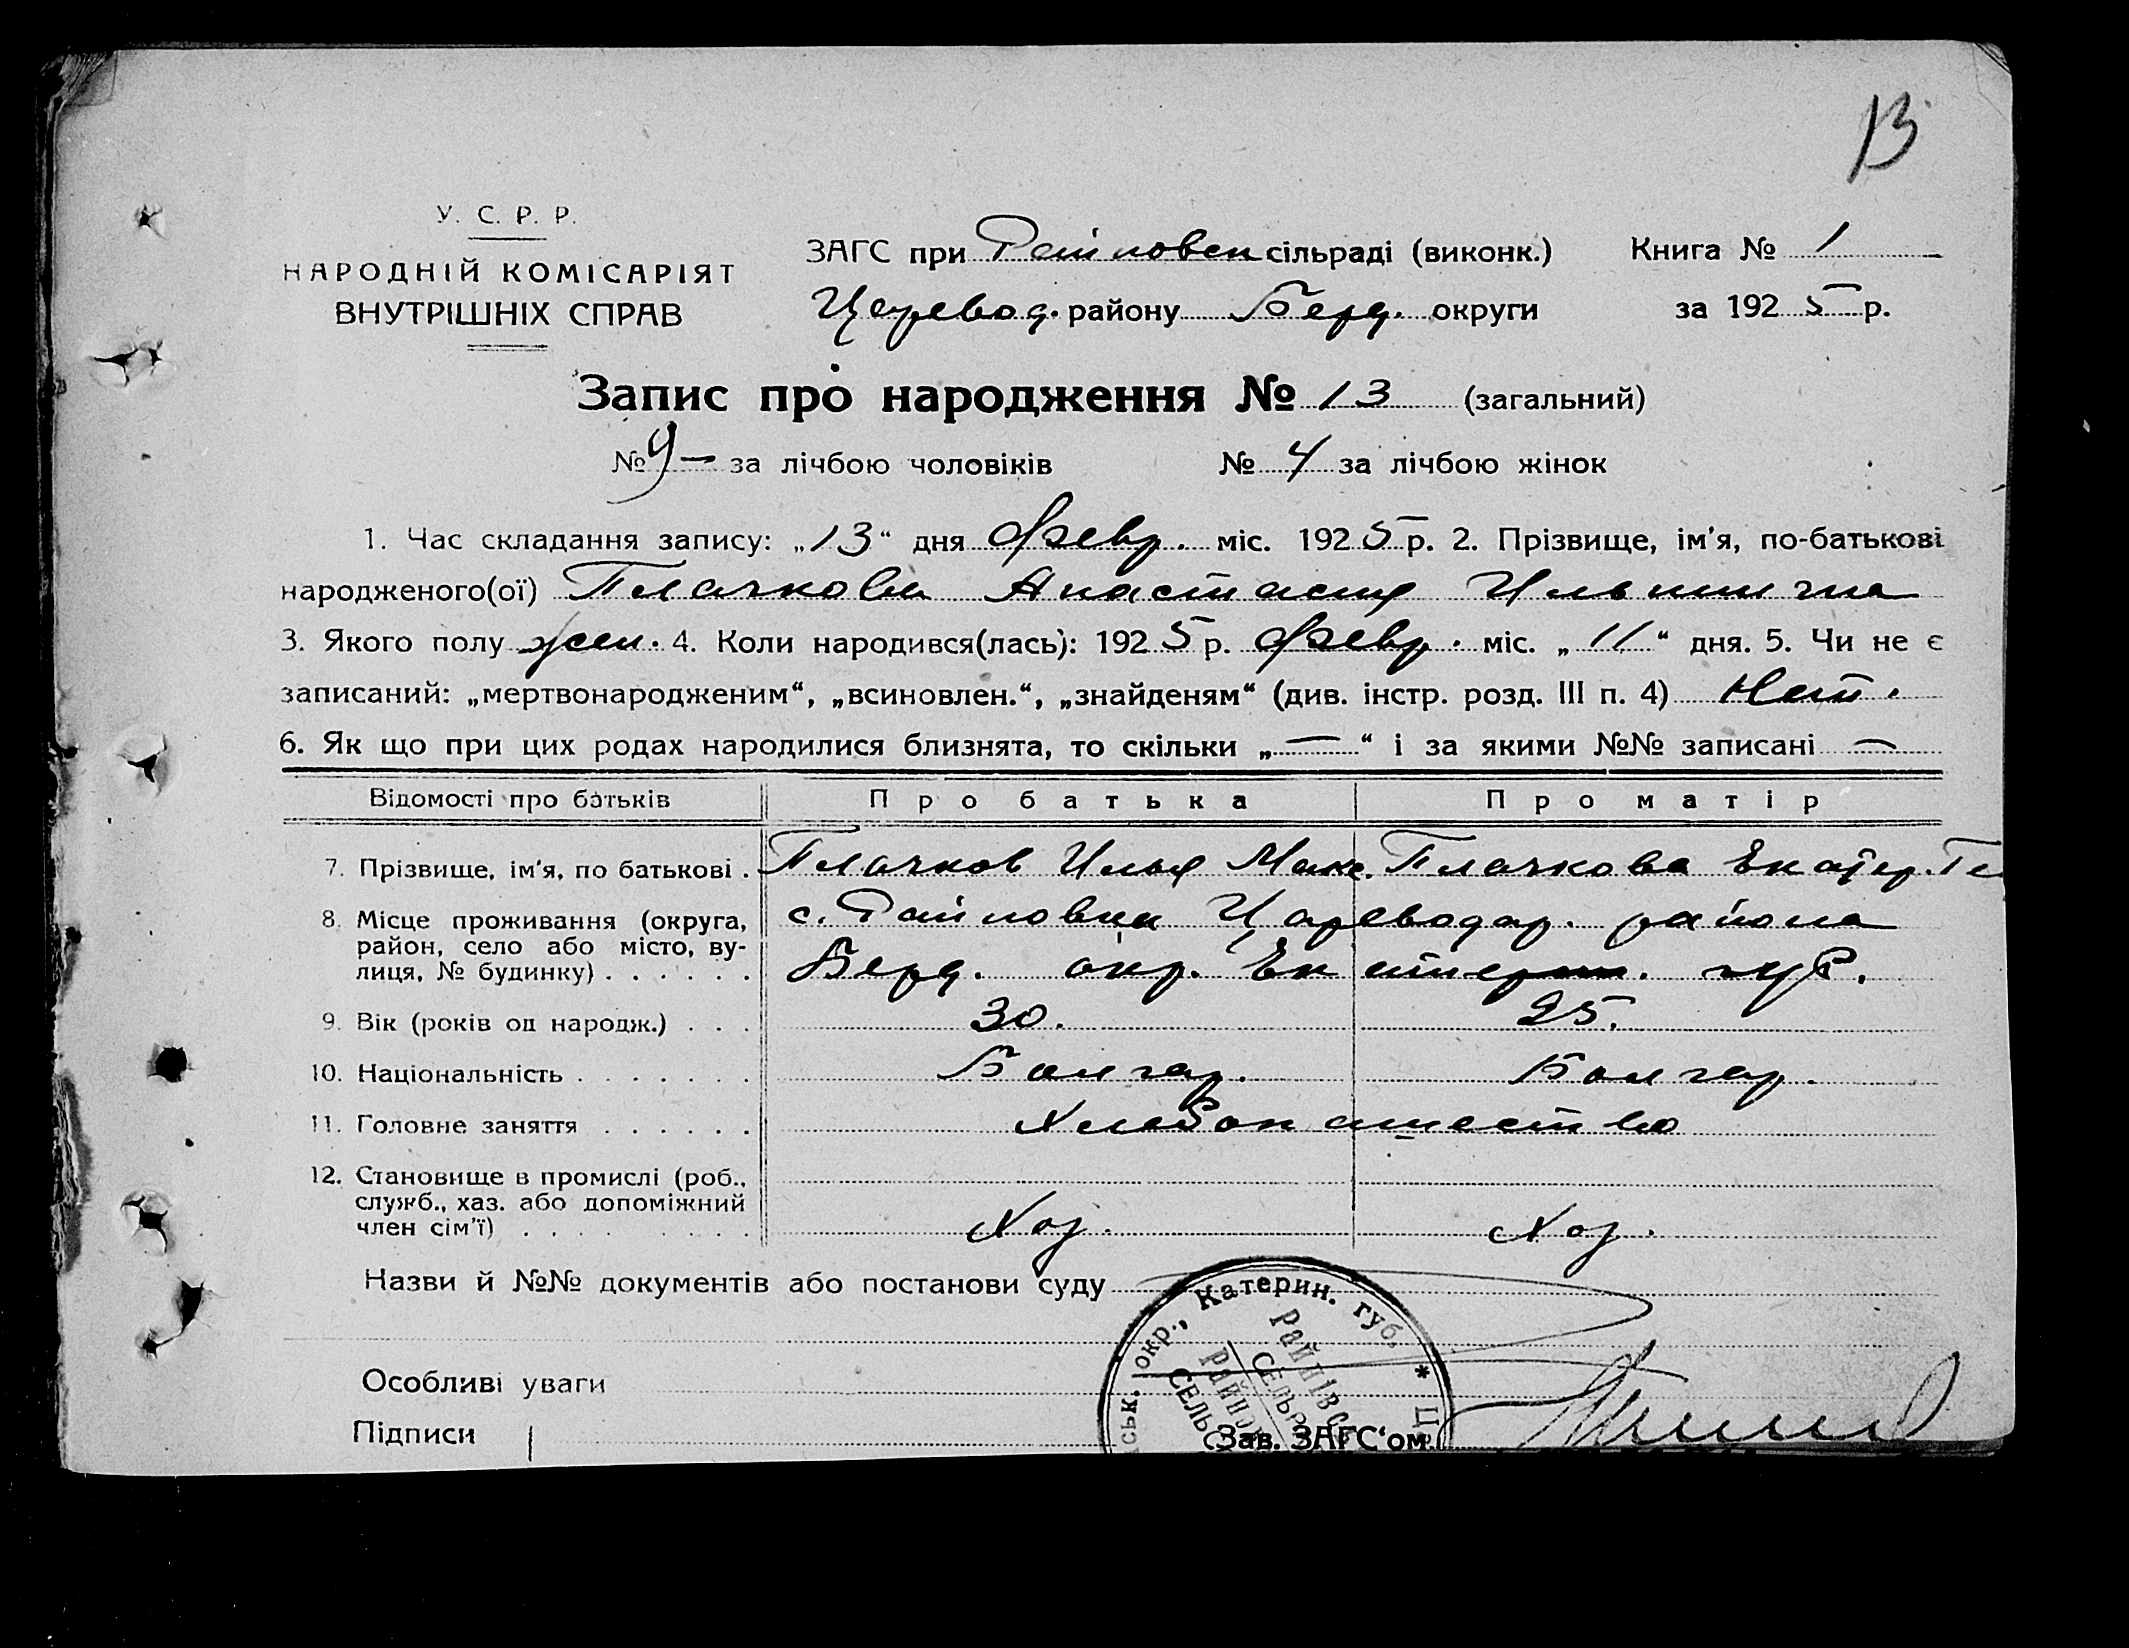 13
У. С. Р. Р.
НАРОДНІЙ КОМІСАРІЯТ
ВНУТРІШНІХ СПРАВ
ЗАГС при Райновск сільраді (виконк.) Книга № 1
Царевод. району Берд. округи за 1925 р.
Запис про народження № 13 (загальний)
№ 9 — за лічбою чоловіків № 4 за лічбою жінок
1. Час складання запису: „13“ дня Февр. міс. 1925 р. 2. Прізвище, ім'я, по-батькові
народженого(ої) Плачкова Анастасия Ильинична
3. Якого полу жен. 4. Коли народився(лась): 1925 р. Февр. міс. „11“ дня. 5. Чи не є
записаний: „мертвонародженим“, „всиновлен.“, „знайденям“ (див. інстр. розд. III п. 4) Нет.
6. Як що при цих родах народилися близнята, то скільки „—“ і за якими №№ записані —
Відомості про батьків Про батька Про матір
7. Прізвище, ім'я, по батькові . Плачков Илья Макс. Плачкова Екатер. Ге
8. Місце проживання (округа, с. Райновка Цареводар. района
район, село або місто, ву-
лиця, № будинку) . . . . . . Берд. окр. Екатерин. губ.
9. Вік (років од народж.) . . . 30. 25.
10. Національність . . . . . . . Болгар. Болгар.
11. Головне заняття . . . . . . Хлебопашество
12. Становище в промислі (роб.,
служб., хаз. або допоміжний
член сім'ї) . . . . . . . . . Хоз. Хоз.
Назви й №№ документів або постанови суду
Катерин. губ. * Ц
ськ. окр.,
Райнівс
СЕЛЬР
Особливі уваги
Підписи Зав. ЗАГС‘ом